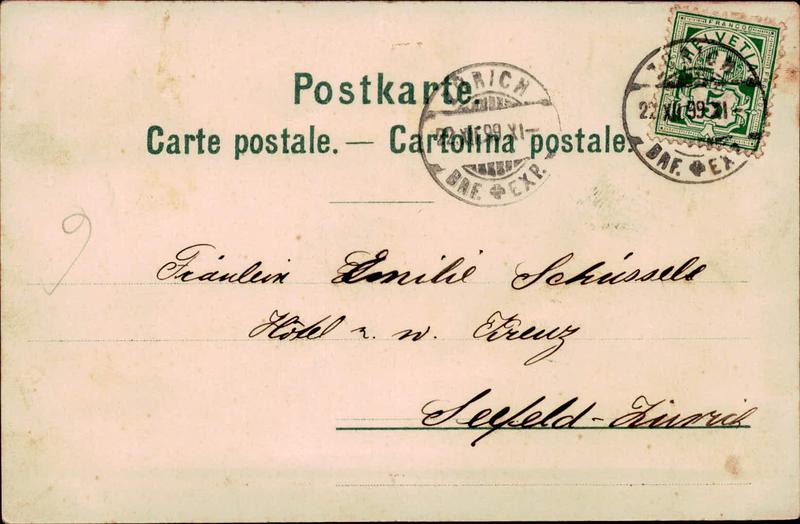 Postkarte.
Carte postale. — Cartolina postale.
FRANCO
HELVETIA
5
ZÜRICH
22.XII.99.XI–
BRF. EXP.
22.XII.99.XI–
BRF. EXP.
9
Fräulein Emilie Schüssele
Hôtel z. w. Kreuz
Seefeld-Zürich